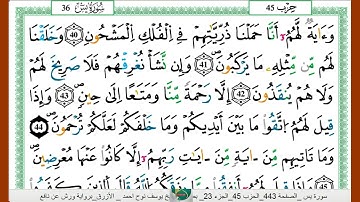 36 سُورَةُ يَسِٓ حِزْب 45
وَءَايَةٞ لَّهُمُۥٓ أَنَّا حَمَلْنَا ذُرِّيَّٰتِهِمْ فِے اِ۬لْفُلْكِ اِ۬لْمَشْحُونِ 40 وَخَلَقْنَا
لَهُم مِّن مِّثْلِهِۦ مَا يَرْكَبُونَ 41 وَإِن نَّشَأْ نُغْرِقْهُمْ فَلَا صَرِيخَ لَهُمْ
وَلَا هُمْ يُنقَذُونَ 42 إِلَّا رَحْمَةٗ مِّنَّا وَمَتَٰعًا إِلَىٰ حِينٖ 43 وَإِذَا
قِيلَ لَهُمُ اُ۪تَّقُواْ مَا بَيْنَ أَيْدِيكُمْ وَمَا خَلْفَكُمْ لَعَلَّكُمْ تُرْحَمُونَ 44
وَمَا تَاتِيهِم مِّنَ ءَايَةٖ مِّنَ ءَايَٰتِ رَبِّهِمُۥٓ إِلَّا كَانُواْ عَنْهَا مُعْرِضِينَ
سورة يس_الصفحة 443_الحزب 45_الجزء 23_ يوسف نوح أحمد _الأزرق_برواية ورش عن نافع